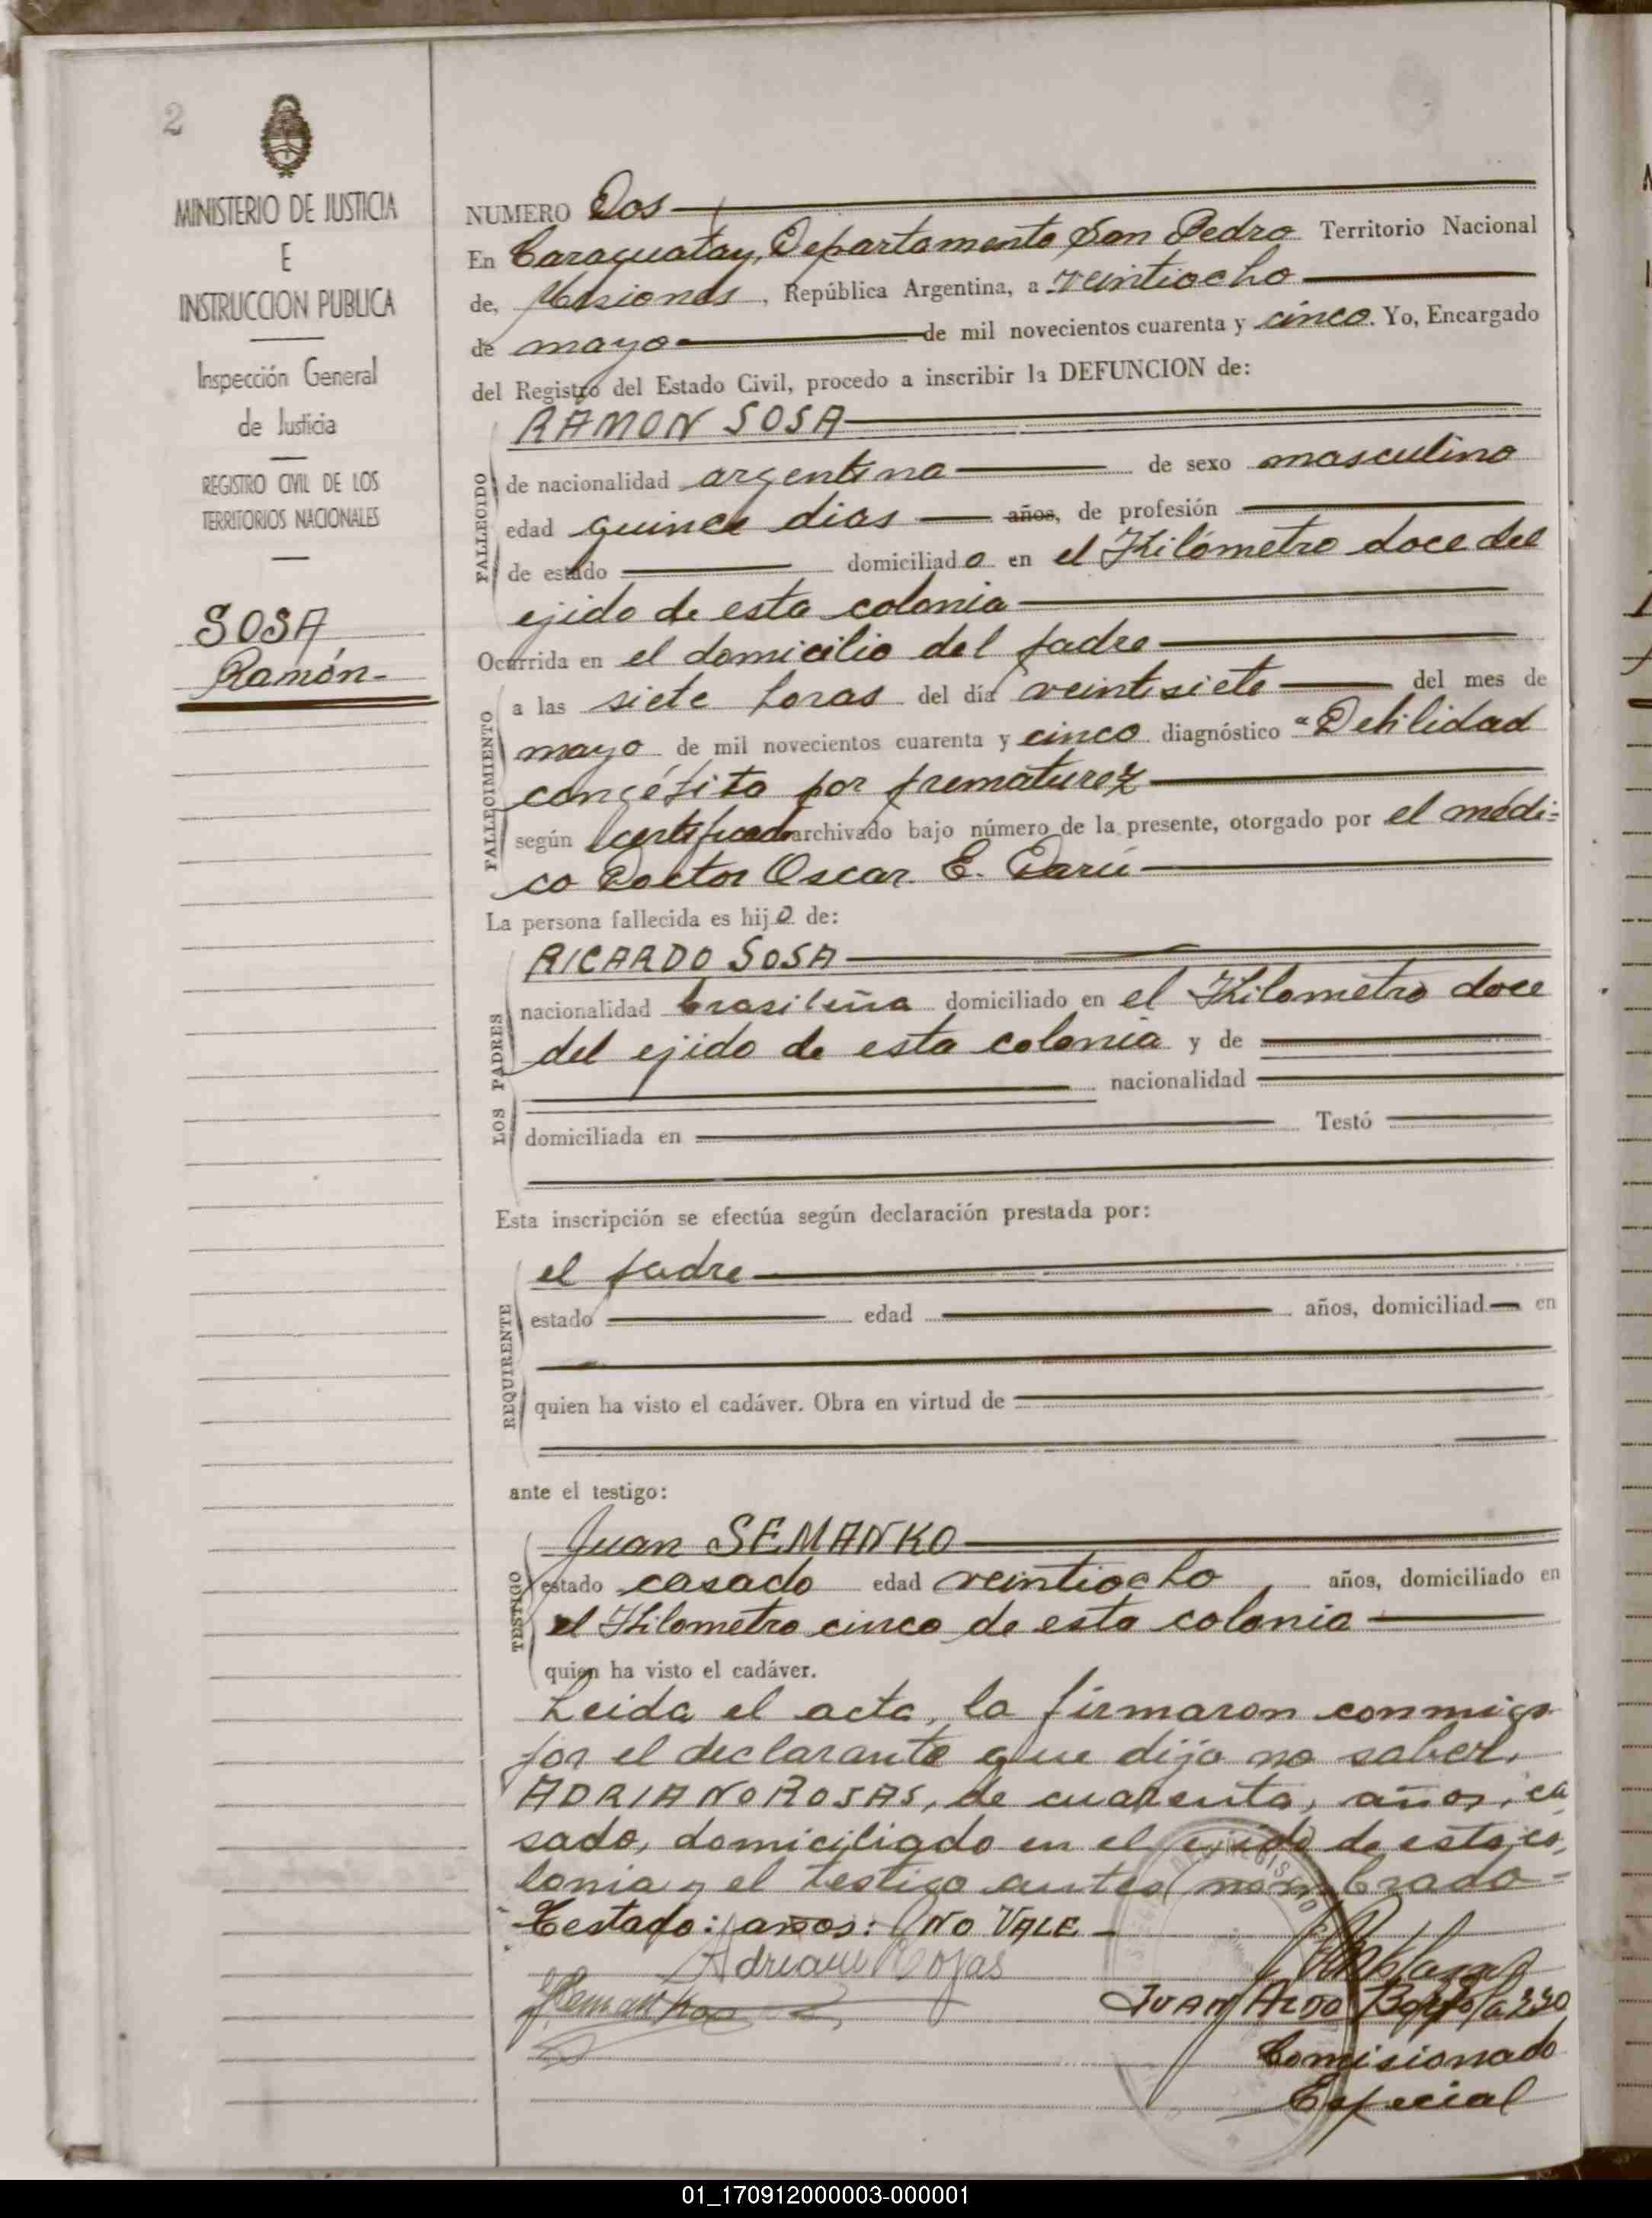 2
MINISTERIO DE JUSTICIA
E
INSTRUCCION PUBLICA
Inspección General
de Justicia
REGISTRO CIVIL DE LOS
TERRITORIOS NACIONALES
SOSA
Ramón.-
NUMERO Dos
En Caraguatay, Departamento San Pedro Territorio Nacional
de, Misiones, República Argentina, a veintiocho
de mayo de mil novecientos cuarenta y cinco. Yo, Encargado
del Registro del Estado Civil, procedo a inscribir la DEFUNCION de:
RAMON SOSA
FALLECIDO
de nacionalidad argentina de sexo masculino
edad quince dias años, de profesión
de estado domiciliado en el Kilómetro doce del
ejido de esta colonia
Ocurrida en el domicilio del padre
FALLECIMIENTO
a las siete horas del día veintisiete del mes de
mayo de mil novecientos cuarenta y cinco diagnóstico "Debilidad
congénita por prematurez
según certificado archivado bajo número de la presente, otorgado por el médi=
co Doctor Oscar E. Darú
La persona fallecida es hijo de:
LOS PADRES
RICARDO SOSA
nacionalidad brasileña domiciliado en el Kilometro doce
del ejido de esta colonia y de
nacionalidad
domiciliada en Testó
Esta inscripción se efectúa según declaración prestada por:
REQUIRENTE
el padre
estado edad años, domiciliad en
quien ha visto el cadáver. Obra en virtud de
ante el testigo:
TESTIGO
Juan SEMANKO
estado casado edad veintiocho, años, domiciliado en
el Kilometro cinco de esta colonia
quien ha visto el cadáver.
Leida el acta, la firmaron conmigo
por el declarante que dijo no saber,
ADRIANO ROSAS, de cuarenta, años, ca
sado, domiciliado en el ejido de esta co,
lonia y el testigo antes nombrado=
Testado: años: NO VALE-
Adriano Rojas
JSemanko
JUAN ALDO
Comisionado
Especial
01_170912000003-000001